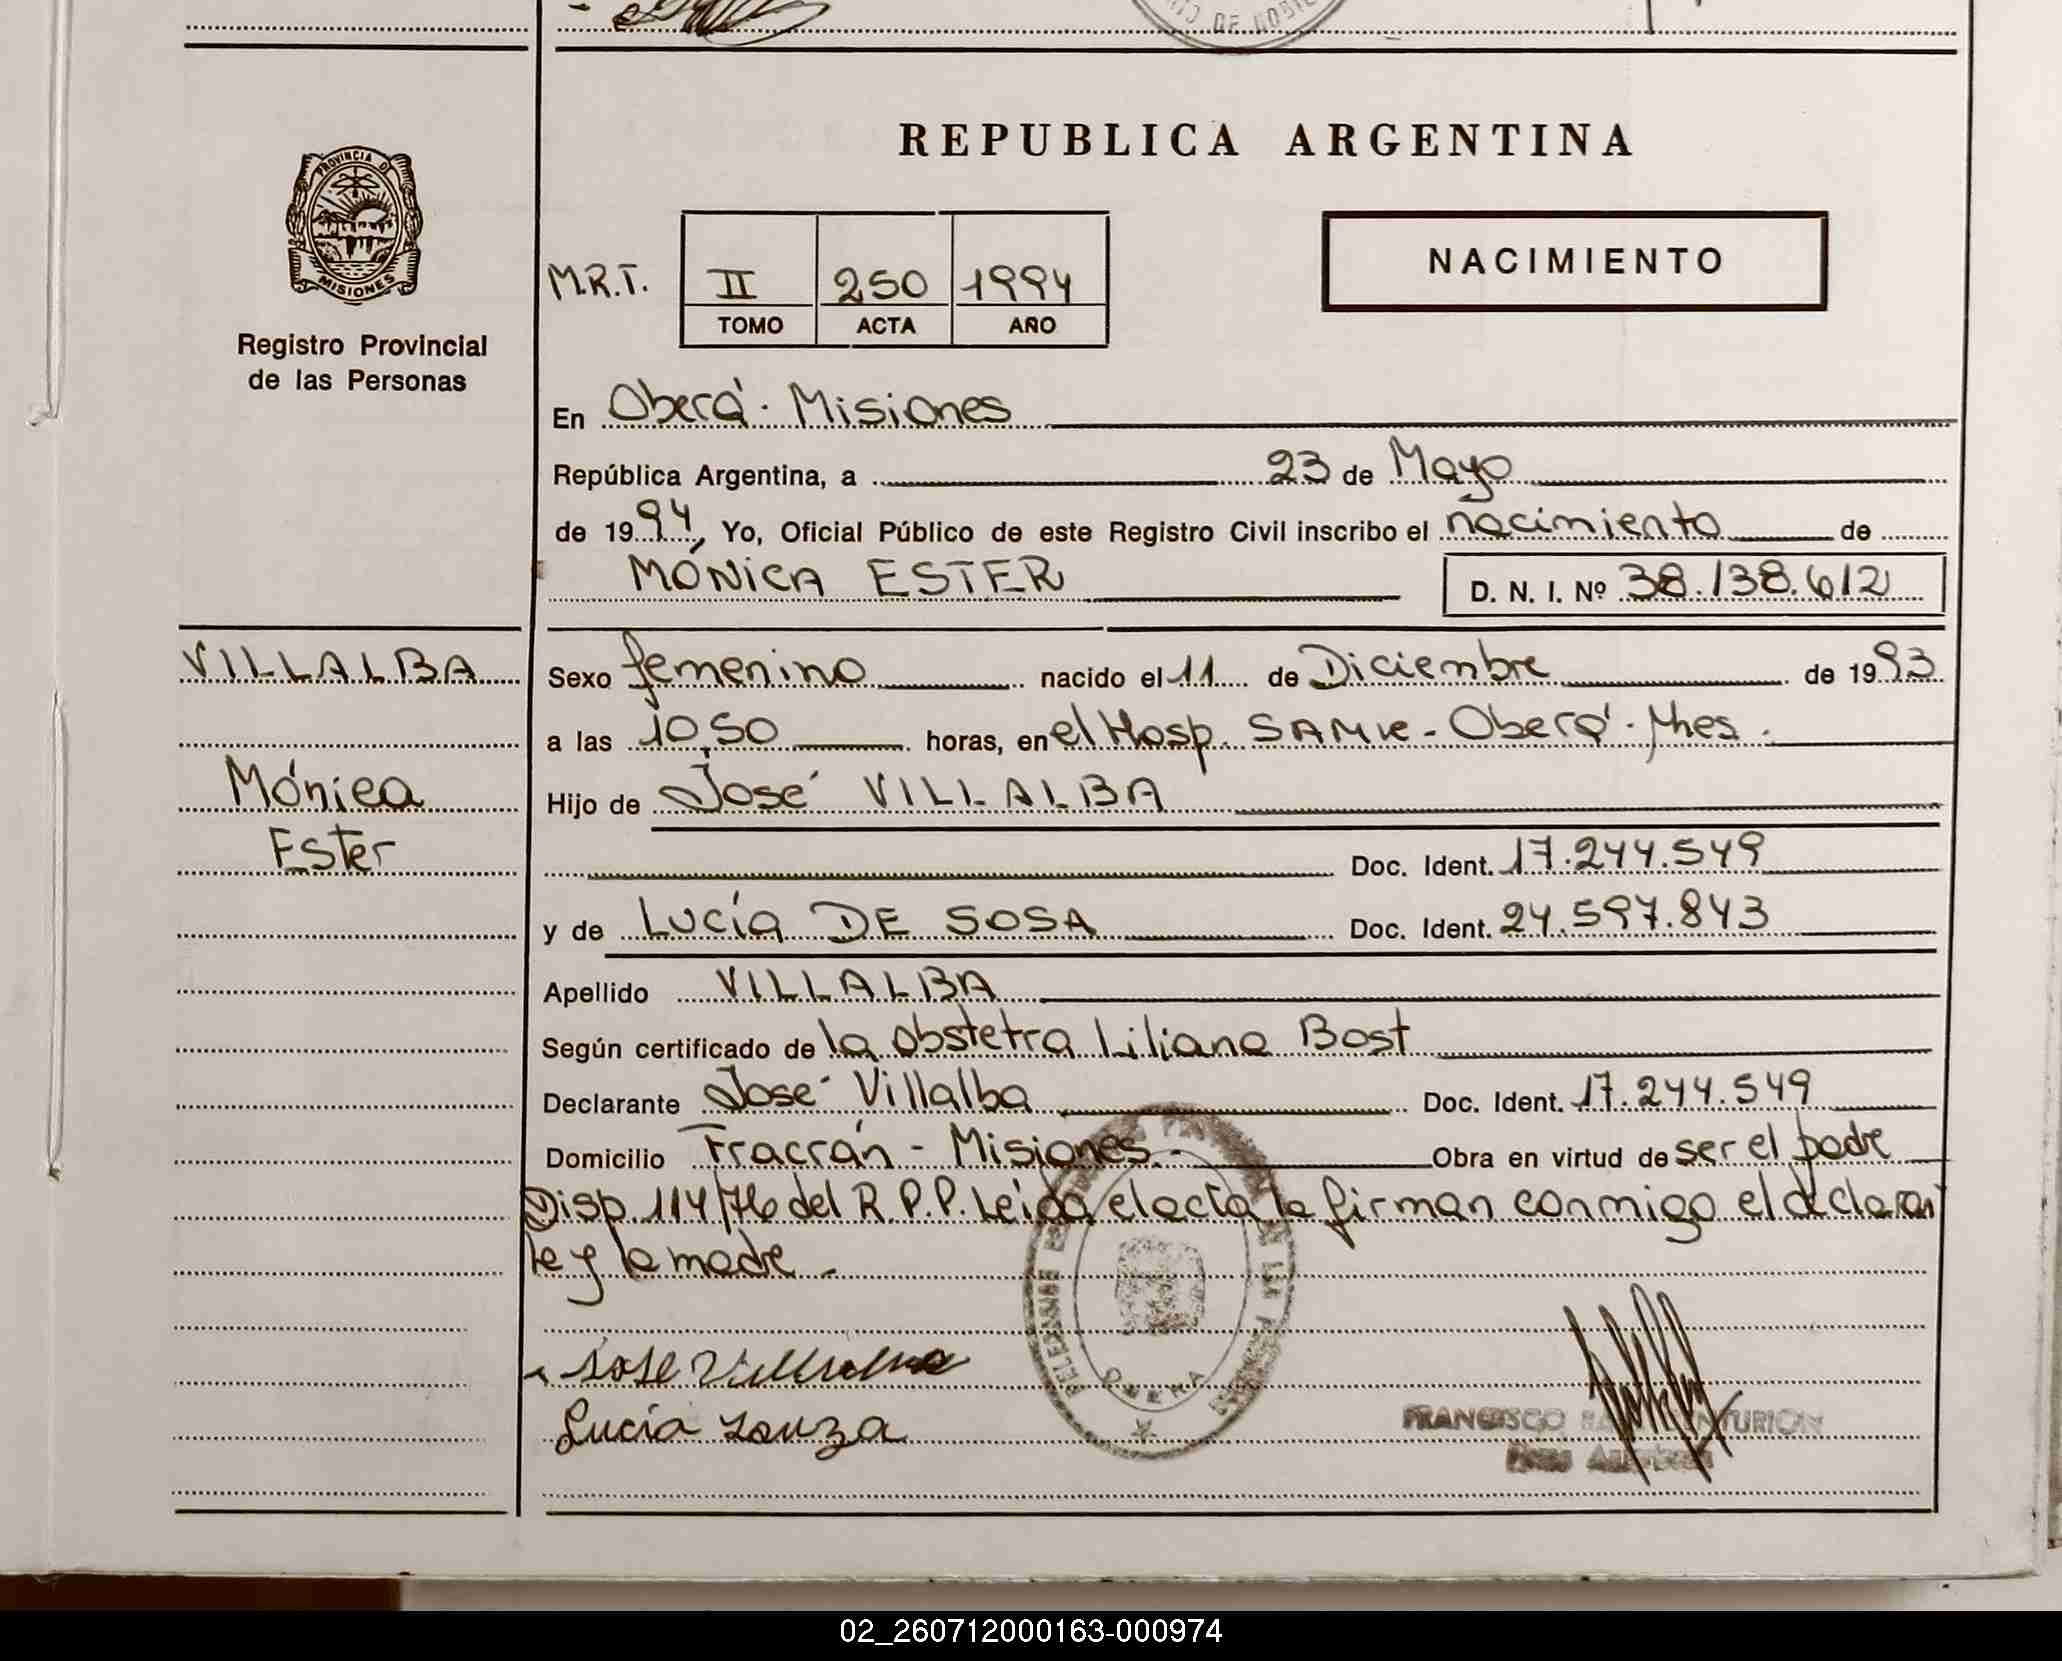 DE GOBIE
REPUBLICA ARGENTINA
PROVINCIA DE
MISIONES
Registro Provincial
de las Personas
M.R.T.
II 250 1994
TOMO ACTA AÑO
NACIMIENTO
En Oberá - Misiones
República Argentina, a 23 de Mayo
de 1994, Yo, Oficial Público de este Registro Civil inscribo el nacimiento de
MÓNICA ESTER D. N. I. Nº 38.138.612
VILLALBA
Mónica
Ester
Sexo femenino nacido el 11 de Diciembre de 1993
a las 10,50 horas, en el Hosp. SAMIC - Oberá - Mnes.
Hijo de José VILLALBA
Doc. Ident. 17.244.549
y de Lucía DE SOSA Doc. Ident. 24.597.843
Apellido VILLALBA
Según certificado de la obstetra Liliana Bost
Declarante José Villalba Doc. Ident. 17.244.549
Domicilio Fracrán - Misiones.- Obra en virtud de ser el padre
Disp. 114/76 del R.P.P. Leida el acta la firman conmigo el declaran
te y la madre.-
José Villalba
Lucía Souza
OBERA
FRANCISCO
02_260712000163-000974